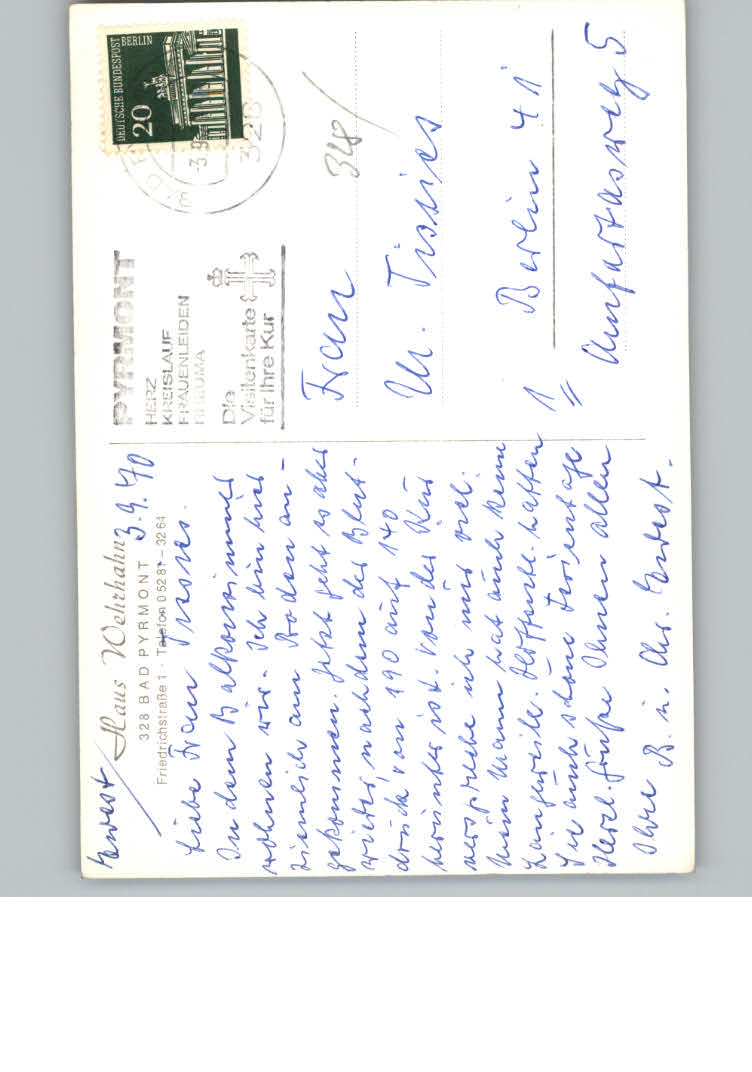 Ewest
Haus Wehrhahn
328 BAD PYRMONT 3.9.70
Friedrichstraße 1 · Telefon 05281–3264
Liebe Frau
In dem Balkonzimmer
wohnen wir. Ich bin hier
ziemlich am Boden an-
gekommen. Jetzt geht es aber
wieder nachdem der Blut-
druck von 190 auf 140
herunter ist. Von der Kur
verspreche ich mir viel.
Mein Mann hat auch keine
Langeweile. Hoffentl. hatten
Sie auch schöne Ferientage
Herzl. Grüße Ihnen allen
Ihre R. u. Chr. Ewest.
PYRMONT
HERZ
KREISLAUF
FRAUENLEIDEN
RHEUMA
Die
Visitenkarte
für Ihre Kur
DEUTSCHE BUNDESPOST BERLIN
20
-3.9
328
348
Frau
M.
Berlin 41
5